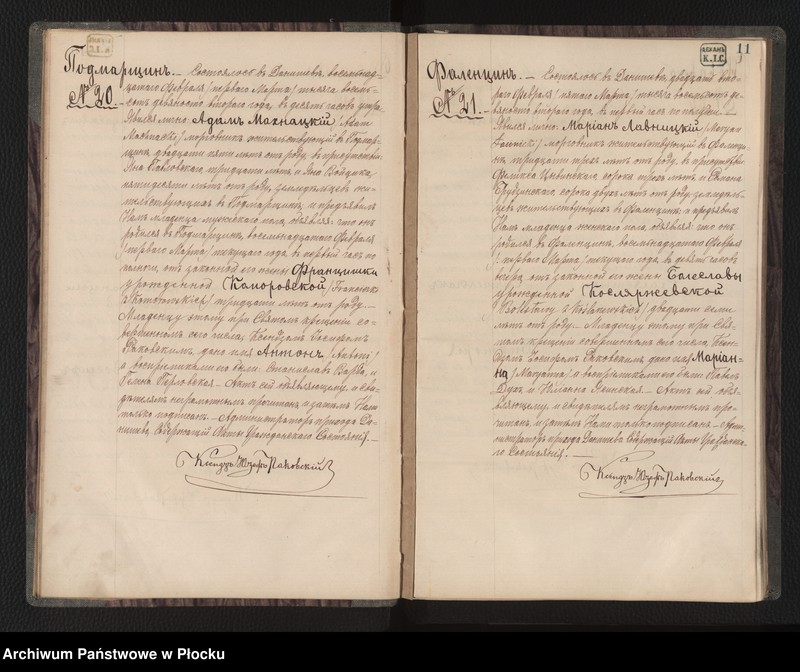 Подмарщинъ. — Состоялось въ Данишевѣ, восемнад-
№ 20.
цатаго Февраля /перваго Марта/ тысяча восемь-
сотъ девяносто втораго года, въ десять часовъ утра.
Явился лично Адамъ Махнацкій /Adam
Machnacki/ морговникъ жительствующій въ Подмар-
щинѣ двадцати пяти лѣтъ отъ роду, въ присутствіи
Яна Павловскаго тридцати лѣтъ, и Яна Войцика
пятидесяти лѣтъ отъ роду, земледѣльцевъ жи-
тельствующихъ въ Подмарщинѣ, и предъявилъ
Намъ младенца мужескаго пола, объявляя: что онъ
родился въ Подмарщинѣ, восемьнадцатаго Февраля
/перваго Марта/ текущаго года, въ первый часъ по
полночи, отъ законной его жены Францишки
урожденной /Franciszki
тридцати лѣтъ отъ роду. —
Младенцу этому при Святомъ крещеніи со-
вершенномъ сего числа, Ксендзомъ Іосифомъ
Раковскимъ, дано имя Антонъ /Antoni/
а воспріемниками его были: Станиславъ и
Актъ сей объявляющему и сви-
дѣтелямъ неграмотнымъ прочитанъ, и затѣмъ Нами
только подписанъ. — Администраторъ прихода Да-
нишева Содержащій Акты Гражданскаго Состоянія. —
Ксендзъ Юзефъ Раковскій
ДЕКАН.
K.I.C.
11
Фаленцинъ. — Состоялось въ Данишевѣ, двадцать вто-
№ 21.
раго Февраля /пятаго Марта/ тысяча восемьсотъ де-
вяносто втораго года, въ первый часъ по полудни. —
Явился лично: Маріанъ Лавницкій /Maryan
морговникъ жительствующій въ Фаленци-
нѣ, тридцати трехъ лѣтъ отъ роду, въ присутствіи
Феликса сорока трехъ лѣтъ, и
сорока двухъ лѣтъ отъ роду, земледѣль-
цевъ жительствующихъ въ Фаленцинѣ, и предъявилъ
Намъ младенца женскаго пола, объявляя: что онъ
родился въ Фаленцинѣ, восемьнадцатаго Февраля
/перваго Марта/ текущаго года, въ девять часовъ
вечера, отъ законной его жены Болеславы
урожденной
двадцати семи
лѣтъ отъ роду. — Младенцу этому при Свя-
томъ крещеніи совершенномъ сего числа, Ксен-
дзомъ Іосифомъ Раковскимъ, дано имя Маріан-
на /Maryanna/ а воспріемниками его были: Павелъ
и Юліанна — Актъ сей объя-
вляющему и свидѣтелямъ неграмотнымъ про-
читанъ, и затѣмъ Нами только подписанъ. — Адми-
нистраторъ прихода Данишева Содержащій Акты Гражданска-
го Состоянія. —
Ксендзъ Юзефъ Раковскій
Archiwum Państwowe w Płocku